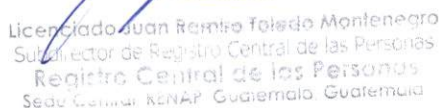 Licenciado Juan Ramiro Toledo Montenegro
Subdirector de Registro Central de las Personas
Registro Central de las Personas
Sede Central RENAP Guatemala, Guatemala